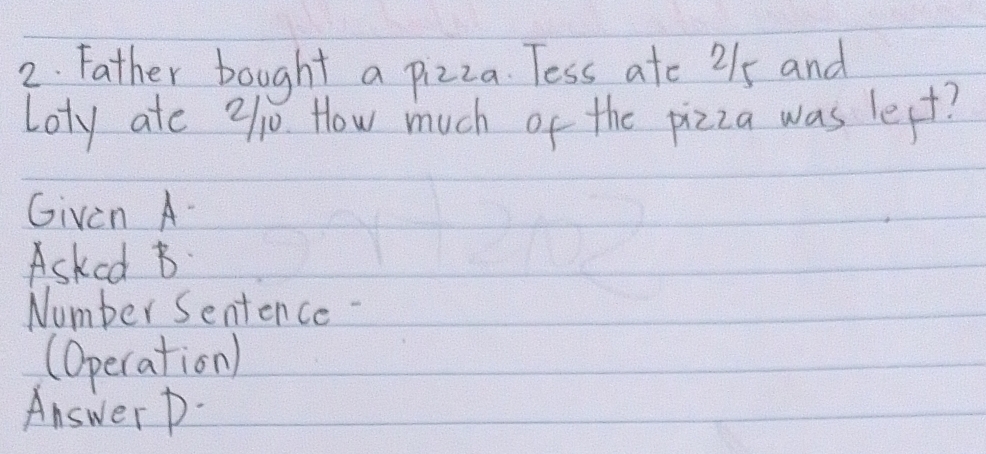 2. Father bought a pizza. Tess ate 2/5 and
Loty ate 2/10. How much of the pizza was left?
Given A-
Asked B-
Number Sentence -
(Operation)
Answer D-